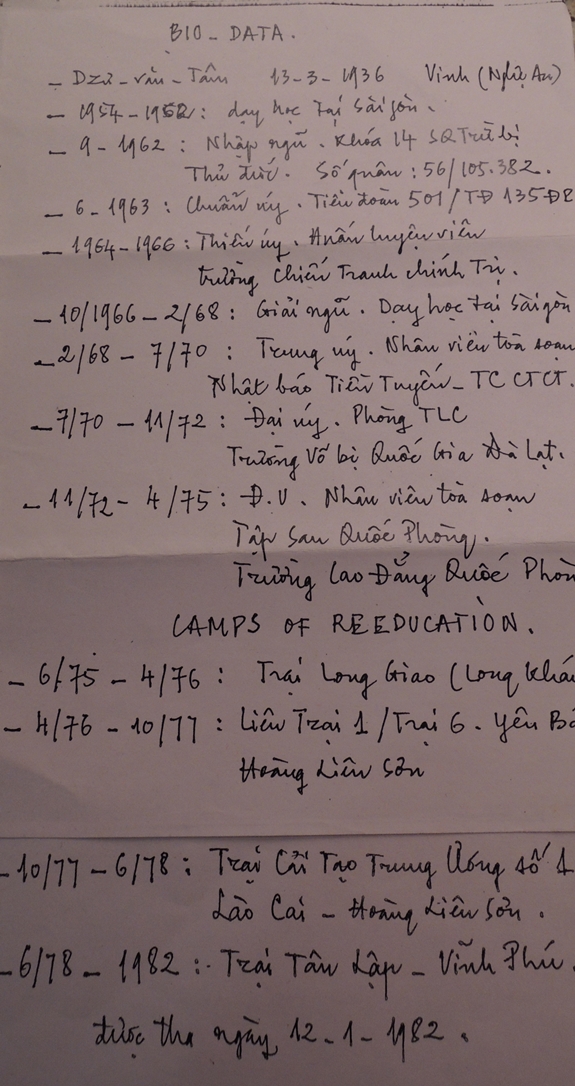 BIO - DATA.
- Dzư - văn - Tâm 13-3-1936 Vinh (Nghệ An)
- 1954 - 1962: dạy học tại Sàigòn.
- 9 - 1962 : Nhập ngũ. Khóa 14 SQ Trừ bị
Thủ đức. Số quân : 56/105.382.
- 6 - 1963 : Chuẩn úy. Tiểu đoàn 501/TĐ 135ĐP
- 1964-1966 : Thiếu úy. Huấn luyện viên
trường Chiến Tranh Chính Trị.
- 10/1966 - 2/68 : Giải ngũ. Dạy học tại Sàigòn
- 2/68 - 7/70 : Trung úy. Nhân viên toà soạn
Nhật báo Tiền Tuyến - TC CTCT.
- 7/70 - 11/72 : Đại úy. Phòng TLC
Trường Võ bị Quốc Gia Đà Lạt.
- 11/72 - 4/75 : Đ.U. Nhân viên toà soạn
Tập San Quốc Phòng.
Trường Cao Đẳng Quốc Phòn
CAMPS OF REEDUCATION.
- 6/75 - 4/76 : Trại Long Giao (Long Khán
- 4/76 - 10/77 : Liên Trại 1 / Trại 6. Yên Bá
Hoàng Liên Sơn
- 10/77 - 6/78 : Trại Cải Tạo Trung Ương số 1
Lào Cai - Hoàng Liên Sơn.
- 6/78 - 1982 : Trại Tân Lập - Vĩnh Phú.
được tha ngày 12-1-1982.